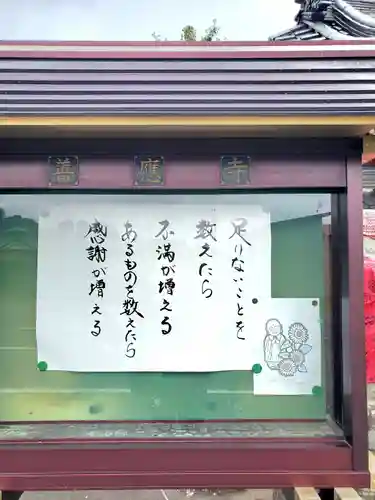 善應寺
足りないことを
数えたら
不満が増える
あるものを数えたら
感謝が増える